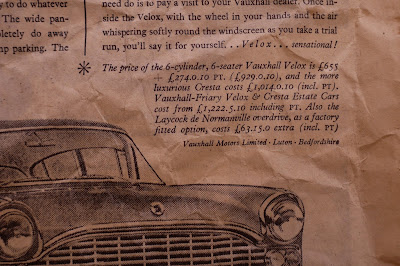 y to do whatever
The wide pan-
pletely do away
mp parking. The
need do is to pay a visit to your Vauxhall dealer. Once in-
side the Velox, with the wheel in your hands and the air
whispering softly round the windscreen as you take a trial
run, you'll say it for yourself. . . Velox... sensational!
* The price of the 6-cylinder, 6-seater Vauxhall Velox is £655
+ £274.0.10 PT. (£929.0.10), and the more
luxurious Cresta costs £1,014.0.10 (incl. PT).
Vauxhall-Friary Velox & Cresta Estate Cars
cost from £1,222.5.10 including PT. Also the
Laycock de Normanville overdrive, as a factory
fitted option, costs £63.15.0 extra (incl. PT)
Vauxhall Motors Limited · Luton · Bedfordshire